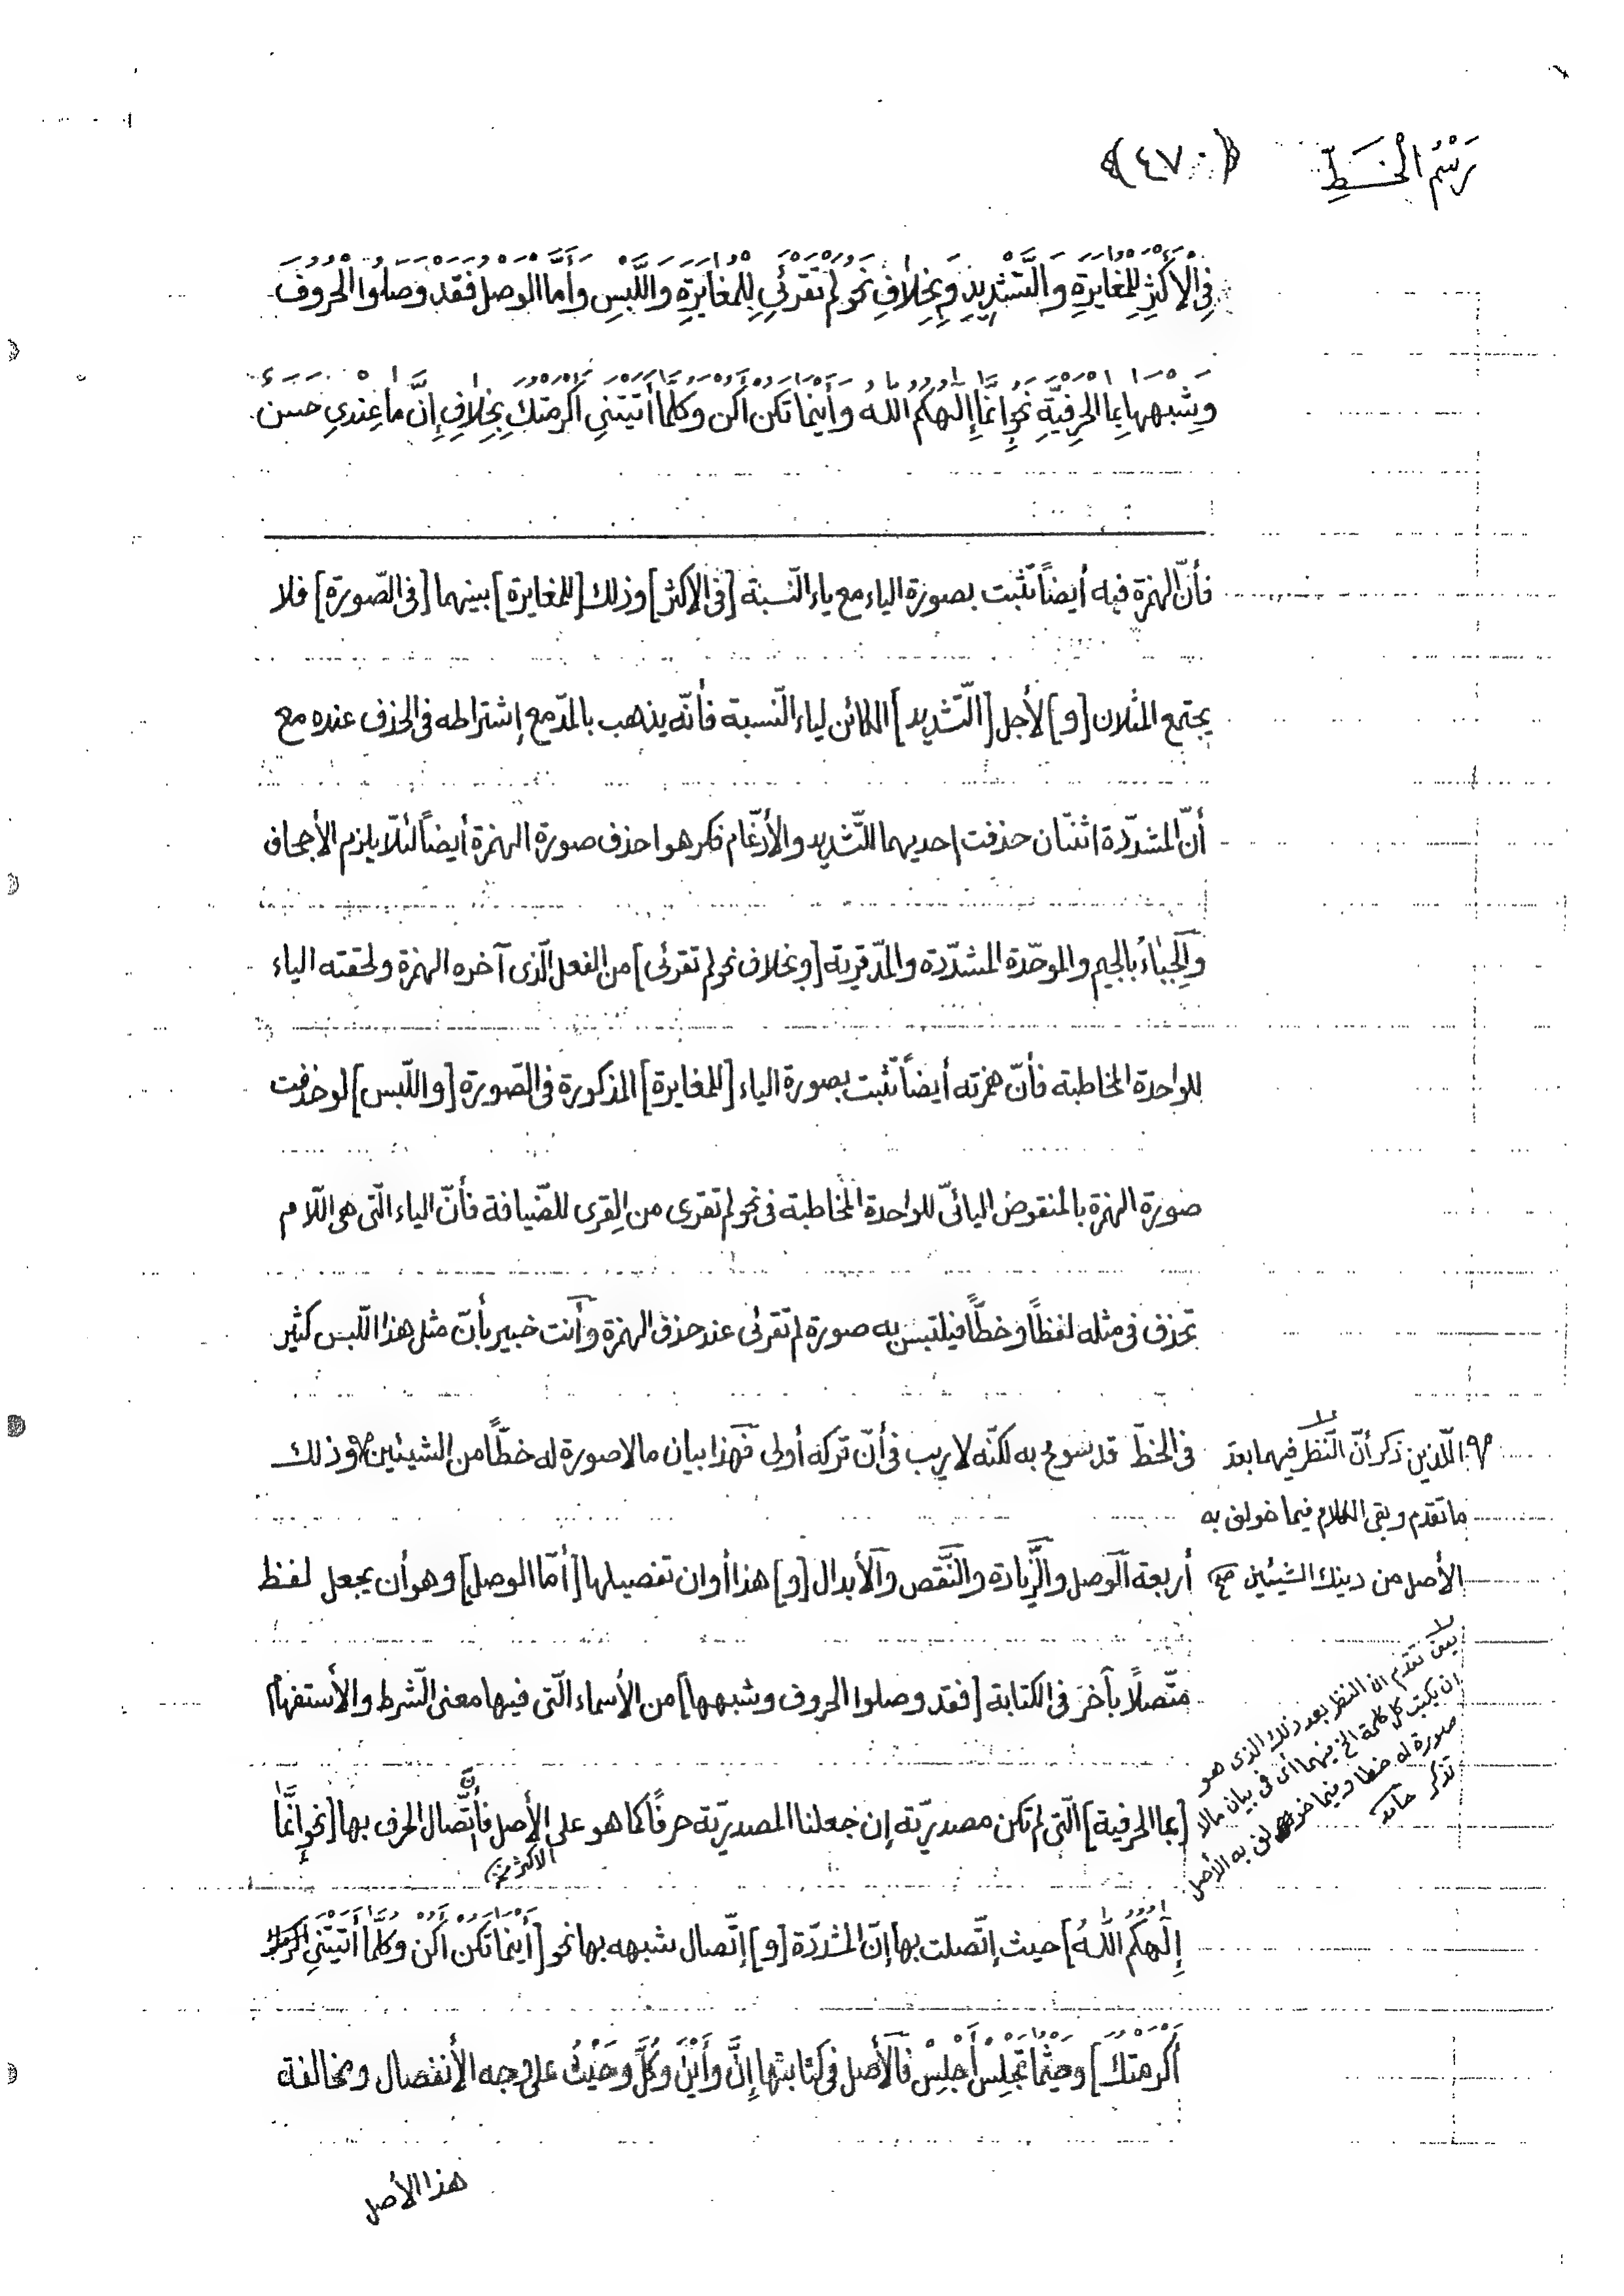 رَسْمُ الْخَطِّ
﴿٤٧٠﴾
فِي الْأَكْثَرِ لِلْمُغَايَرَةِ وَالتَّشْدِيدِ وَبِخِلَافِ نَحْوِ لَمْ تَقْرَئِي لِلْمُغَايَرَةِ وَاللَّبْسِ وَأَمَّا الْوَصْلُ فَقَدْ وَصَلُوا الْحُرُوفَ
وَشِبْهَهَا بِمَا الْحَرْفِيَّةِ نَحْوُ إِنَّمَا إِلٰهُكُمُ اللهُ وَأَيْنَمَا تَكُنْ أَكُنْ وَكُلَّمَا أَتَيْتَنِي أَكْرَمْتُكَ بِخِلَافِ إِنَّ مَا عِنْدِي حَسَنٌ
فأنّ الهمزة فيه أيضاً تثبت بصورة الياء مع ياء النّسبة [في الأكثر] وذلك [للمغايرة] بينهما [في الصّورة] فلا
يجتمع المثلان [و] لأجل [التّشديد] الكائن لياء النّسبة فأنّه يذهب بالمدّ مع إشتراطه في الحذف عنده مع
أنّ المشدّدة اثنتان حذفت إحديهما للتّشديد والأدّغام فكرهوا حذف صورة الهمزة أيضاً لئلّا يلزم الأجحاف
وَالجبّاءُ بالجيم والموحّدة المشدّدة والمدّ قرية [وبخلاف نحو لم تقرئي] من الفعل الّذى آخره الهمزة ولحقته الياء
للواحدة المخاطبة فأنّ همزته أيضاً تثبت بصورة الياء [للمغايرة] المذكورة في الصّورة [واللّبس] لو حُذفت
صورة الهمزة بالمنقوص اليائىّ للواحدة المخاطبة في نحو لم تقرى من القِرى للضّيافة فأنّ الياء الّتى هى اللّام
تحذف في مثله لفظاً وخطّاً فيلتبس به صورة لم تقرئى عند حذف الهمزة وأنت خبير بأنّ مثل هذا اللّبس كثير
في الخطّ قد سومح به لكنّه لا ريب في أنّ تركه أولى فهذا بيان ما لا صورة له خطّاً من الشيئين وذلك
اللّذين ذكر أنّ النّظر فيهما بعد
ما تقدم وبقى الكلام فيما خولف به
الأصل من دينك الشيئين صح
أربعة الوصل والزّيادة والنّقص والأبدال [و] هذا أوان تفصيلها [أمّا الوصل] وهو أن يجعل لفظ
متّصلاً بآخر في الكتابة [فقد وصلوا الحروف وشبهها] من الأسماء الّتى فيها معنى الشّرط والأستفهام
[بما الحرفية] الّتى لم تكن مصدريّة إن جعلنا المصدريّة حرفاً كما هو على الأصل فأنّ إتّصال الحرف بها [نحو إِنَّمَا
الأكثر
تقدم ان النظر بعد ذلك الذى هو
ان يكتب كل كلمة الخ فيهما أى في بيان مالا
صورة له خطا وفيما خولف به الأصل
تذكر
إِلٰهُكُمُ اللهُ] حيث إتّصلت بها إنّ المشدّدة [و] إتّصال شبهه بها نحو [أَيْنَمَا تَكُنْ أَكُنْ وَكُلَّمَا أَتَيْتَنِي
أَكْرَمْتُكَ] وحَيْثُمَا تَجْلِسْ أَجْلِسْ فالأصل في كتابتها إنَّ وَأَيْنَ وَكُلَّ وَحَيْثُ على وجه الأنفصال ومخالفة
هذا الأصل